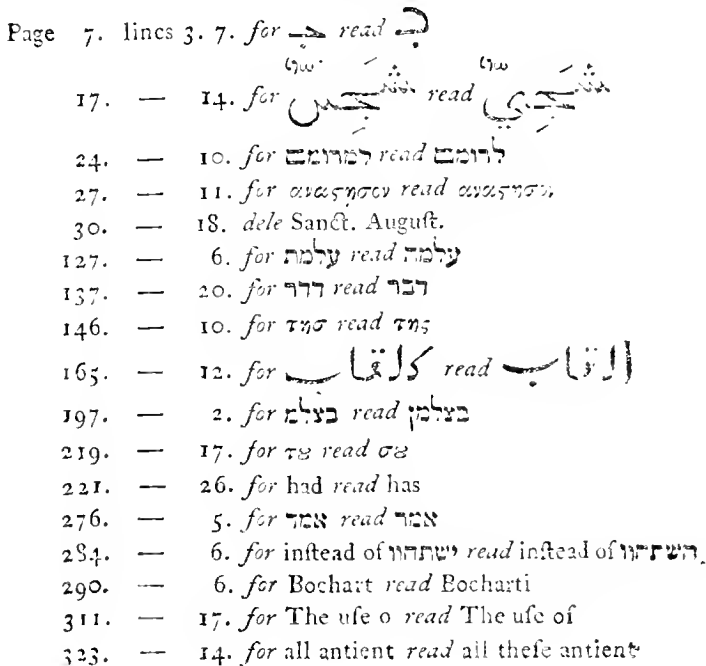 Page 7. lines 3. 7. for read
17. — 14. for read
24. — 10. for למרומם read לרומם
27. — 11. for αναϛησον read
30. — 18. dele Sanct. Auguſt.
127. — 6. for עלמת read עלמה
137. — 20. for דדף read דבר
146. — 10. for τησ read της
165. — 12. for كالقاب read القاب
197. — 2. for בצלמ read בצלמן
219. — 17. for τȣ read σȣ
221. — 26. for had read has
276. — 5. for אמד read אמר
284. — 6. for inſtead of ישתחוו read inſtead of השתחוו.
290. — 6. for Bochart read Bocharti
311. — 17. for The uſe o read The uſe of
323. — 14. for all antient read all theſe antient